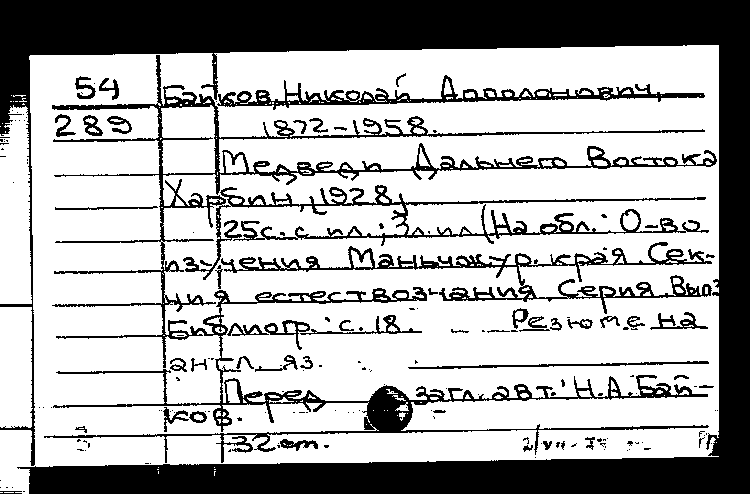 54 Байков, Николай Апполонович,
289 1872-1958.
Медведи Дальнего Востока
Харбин, [1928]
25с. с ил.; 3л. ил (На обл.: О-во
изучения Маньчжур. края. Сек-
ция естествознания. Серия. Вып3
Библиогр.: с. 18. Резюме на
англ. яз.
Перед загл. авт.: Н.А. Бай-
ков.
32 cm.